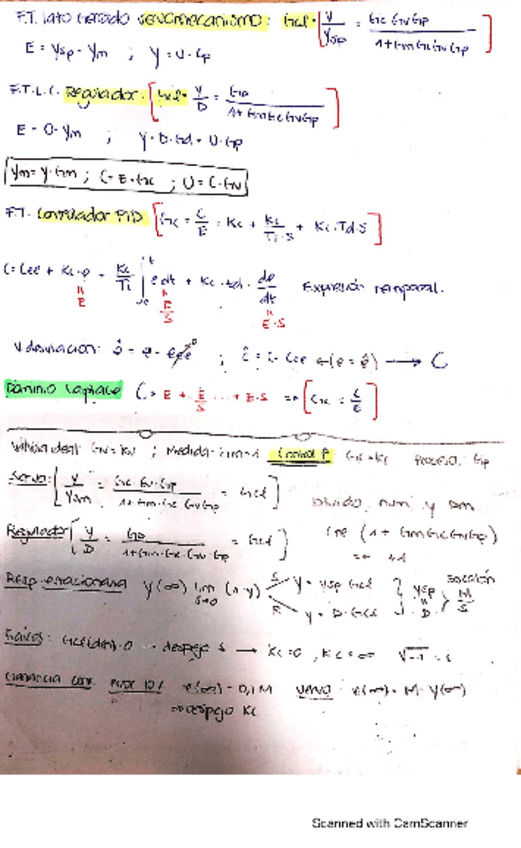 F.T. lazo cerrado servomecanismo: Gcl = [ Y/Ysp = Gc Gv Gp / 1+Gm Gc Gv Gp ]
E = Ysp - Ym ; Y = U·Gp
F.T.L.C. Regulador [ Gcl = Y/D = Gp / 1+Gm Gc Gv Gp ]
E = 0 - Ym ; Y = D·Gd + U·Gp
Ym = Y·Gm ; C = E·Gc ; U = C·Gv
F.T. Controlador PID [ Gc = C/E = Kc + Kc/Ti·S + Kc·Td·S ]
C = Cee + Kc·e + Kc/Ti ∫ e dt + Kc·td· de/dt Expresión temporal.
E E/S E·S
V desviación:
Dominio Laplace C = E + E/S ... + E·S => [ Gc = C/E ]
Válvula ideal Gv = Kv ; Medida: Gm = 1 Control P Gc = Kc Proceso: Gp
Servo [ Y/Ysp = Gc Gv Gp / 1+Gm·Gc Gv Gp = Gcl ]
Divido num y den
Regulador [ Y/D = Gp / 1+Gm·Gc·Gv·Gp = Gcl ]
(1 + Gm Gc Gv Gp)
Resp estacionaria y(∞) lim s→0 (s·y) S Y = Ysp Gcl Ysp escalón M/S
R Y = D·Gcl D
despejo s → Kc = 0, Kc = ∞ √-1 = i
error 10% e(∞) = 0,1M servo e(∞) = M - y(∞)
=> despejo Kc
Scanned with CamScanner